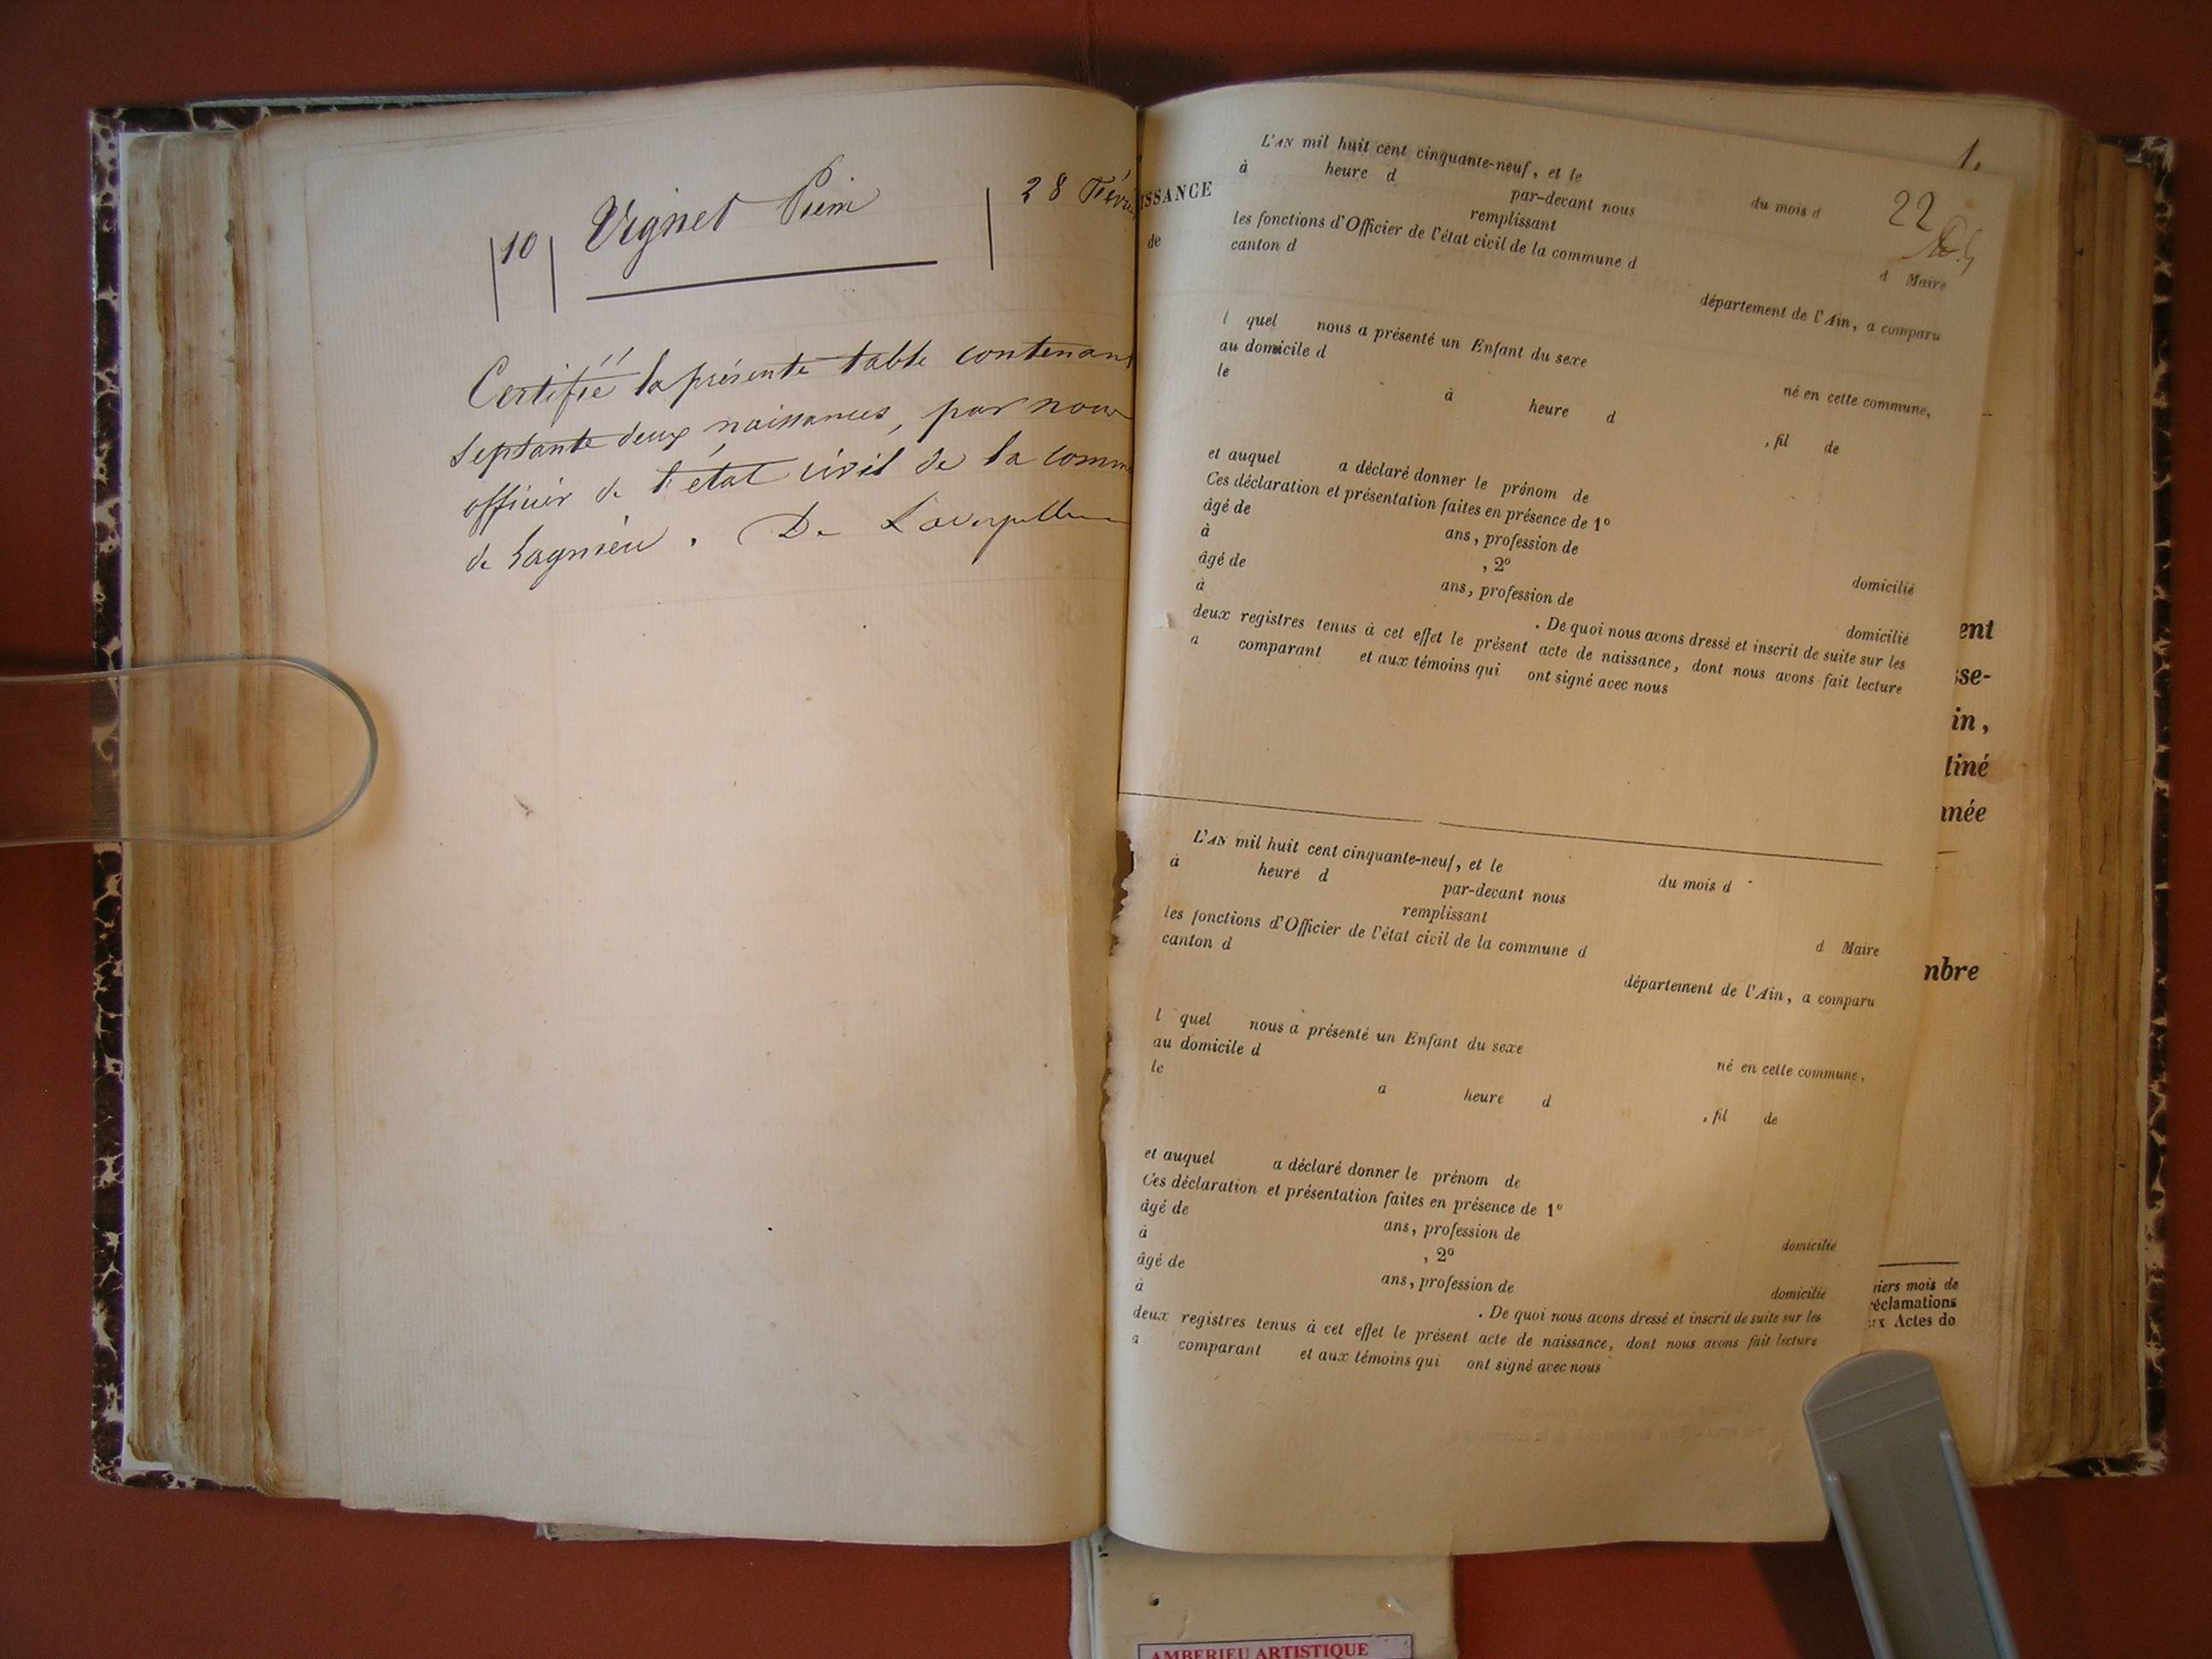 |10| Vignet Pierre | 28 Févri
Certifié la présente table contenant
septante deux naissances, par nous
officier de l'état civil de la comm
de Lagnieu. De
1.
22
ISSANCE
de
L'AN mil huit cent cinquante-neuf, et le du mois d
à heure d par-devant nous
remplissant d Maire
les fonctions d'Officier de l'état civil de la commune d
canton d département de l'Ain, a comparu
l quel nous a présenté un Enfant du sexe né en cette commune,
au domicile d
le à heure d , fil de
et auquel a déclaré donner le prénom de
Ces déclaration et présentation faites en présence de 1º
âgé de ans, profession de domicilié
à , 2º
âgé de ans, profession de domicilié
à . De quoi nous avons dressé et inscrit de suite sur les
deux registres tenus à cet effet le présent acte de naissance, dont nous avons fait lecture
a comparant et aux témoins qui ont signé avec nous
L'AN mil huit cent cinquante-neuf, et le du mois d
à heure d par-devant nous
remplissant d Maire
les fonctions d'Officier de l'état civil de la commune d
canton d département de l'Ain, a comparu
l quel nous a présenté un Enfant du sexe né en cette commune,
au domicile d
le a heure d , fil de
et auquel a déclaré donner le prénom de
Ces déclaration et présentation faites en présence de 1º
âgé de ans, profession de domicilié
à , 2º
âgé de ans, profession de domicilié
à . De quoi nous avons dressé et inscrit de suite sur les
deux registres tenus à cet effet le présent acte de naissance, dont nous avons fait lecture
a comparant et aux témoins qui ont signé avec nous
ent
sse-
in,
tiné
nnée
nbre
niers mois de
réclamations
ux Actes de
AMBERIEU ARTISTIQUE